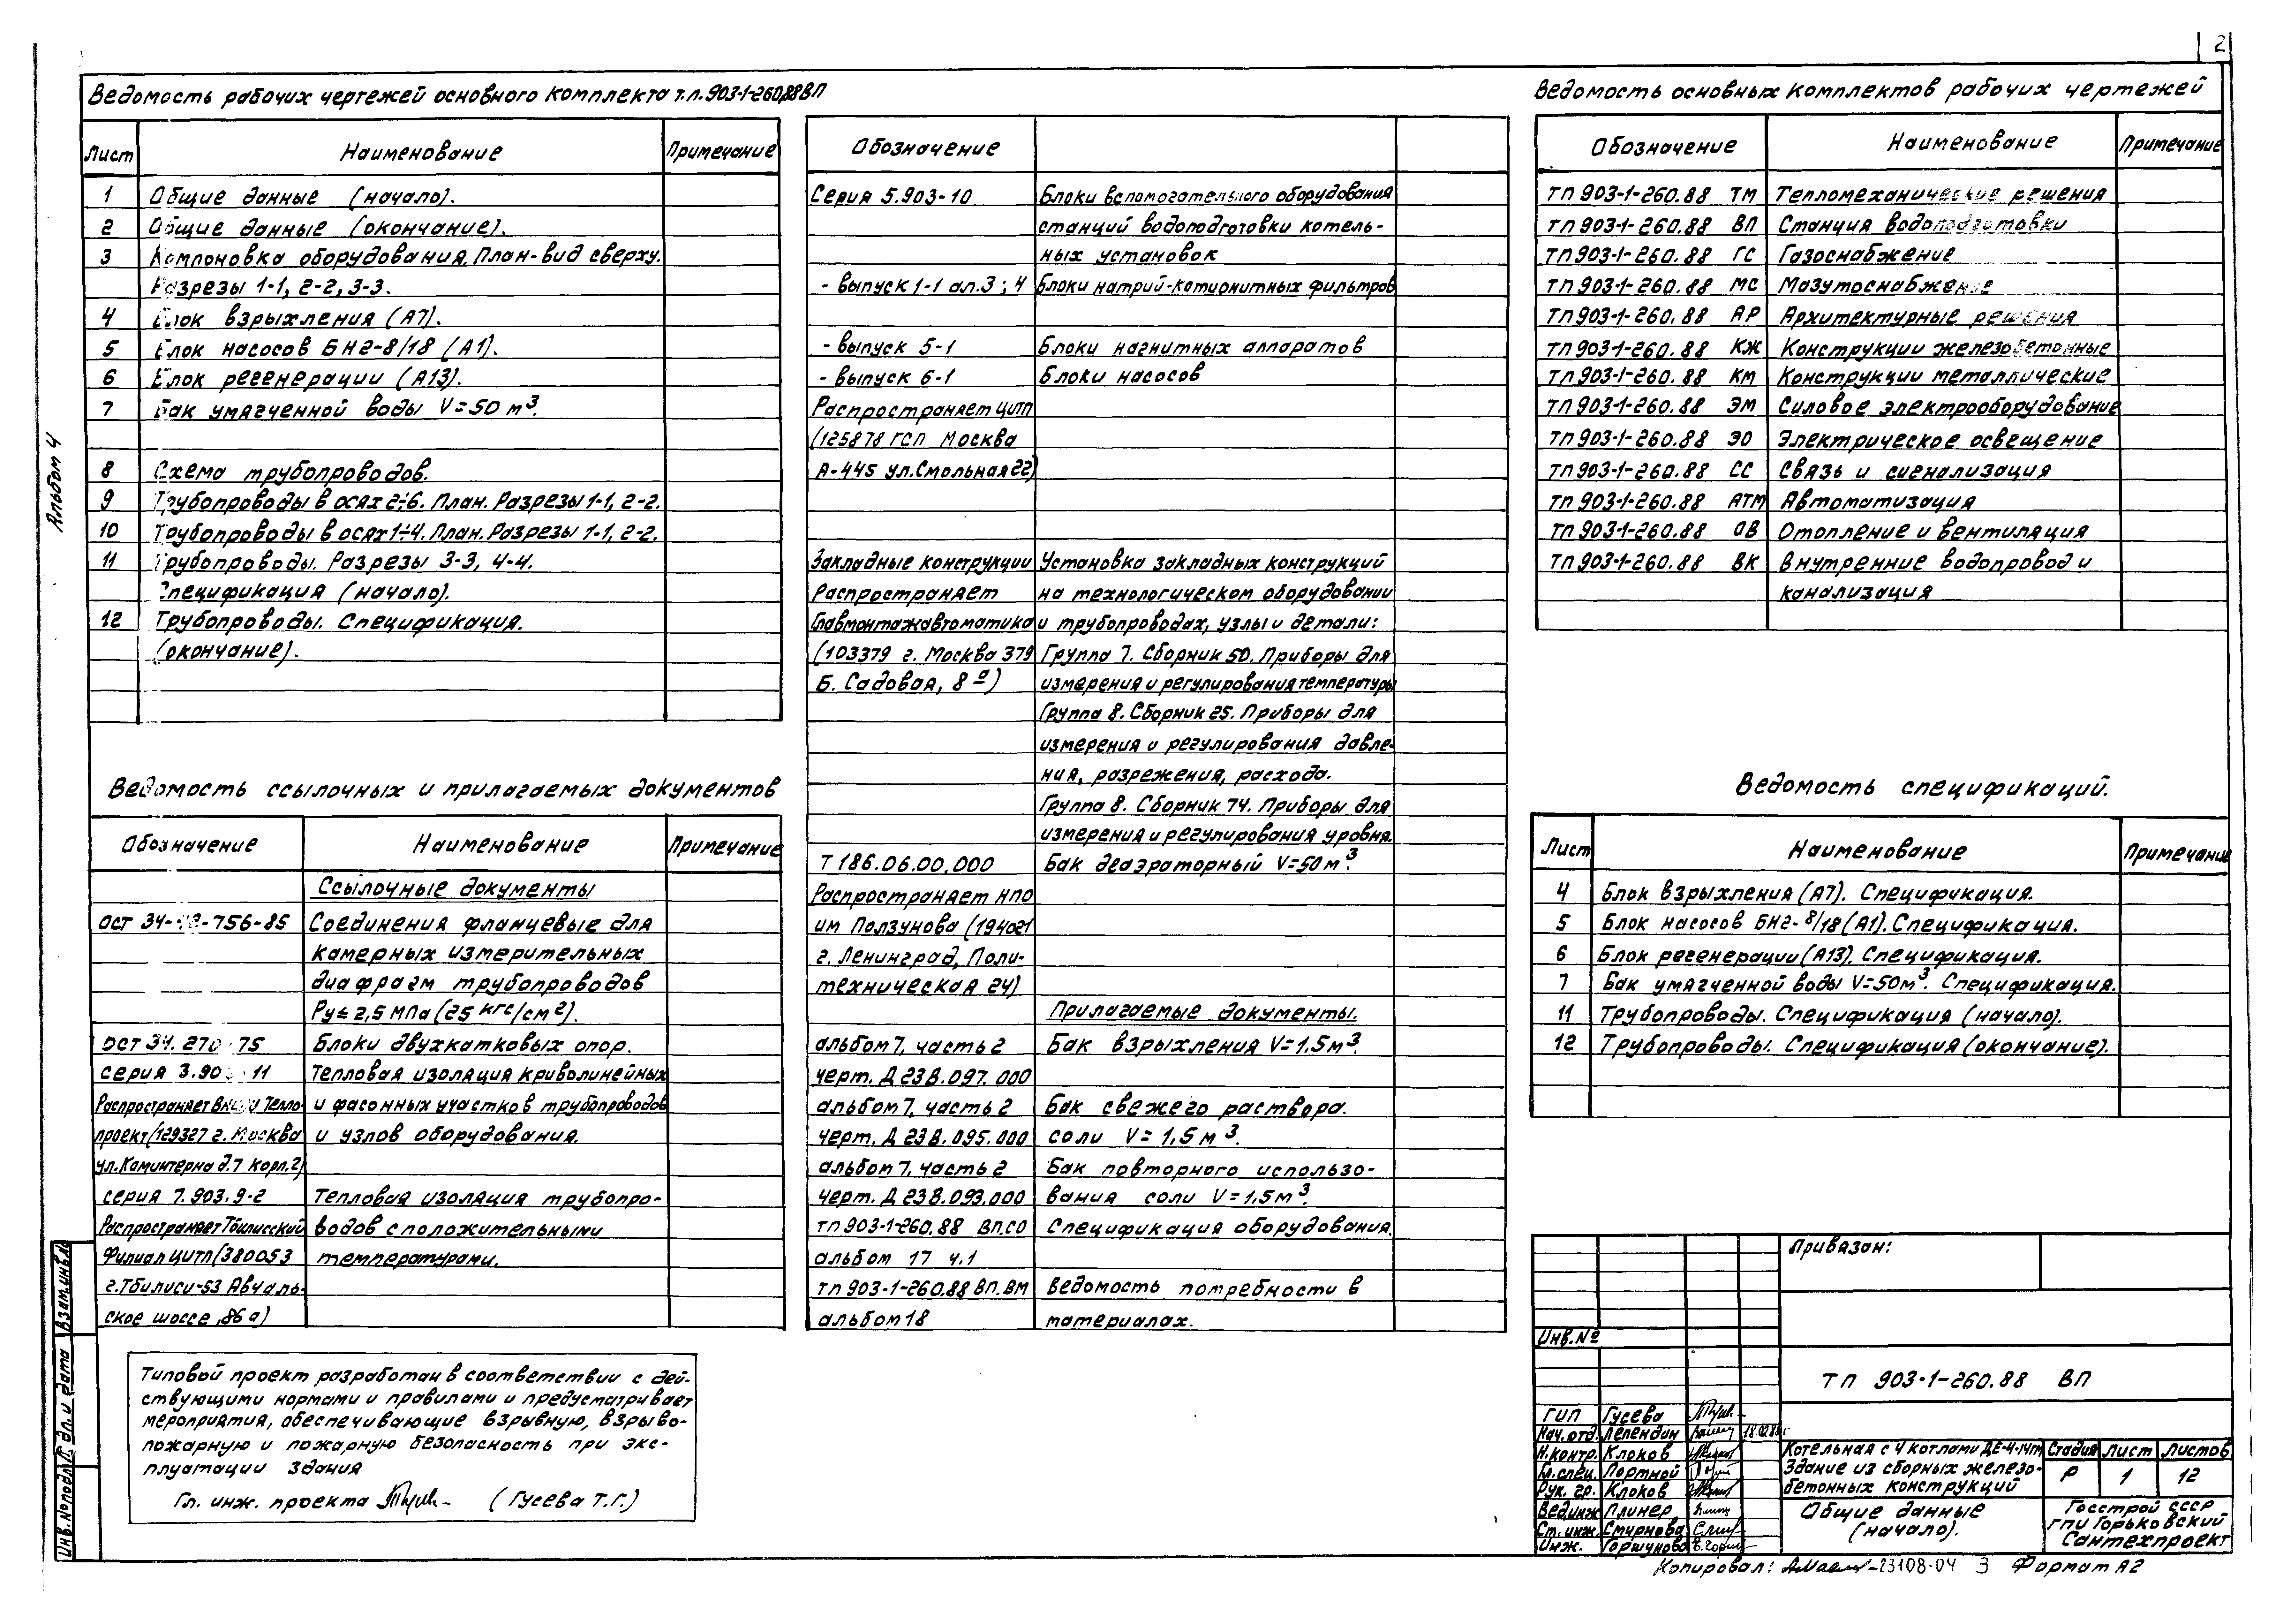 2
Альбом 4
Ведомость рабочих чертежей основного комплекта т.п. 903-1-260.88 ВП
Лист Наименование Примечание
1 Общие данные (начало).
2 Общие данные (окончание).
3 Компоновка оборудования. План-вид сверху.
Разрезы 1-1, 2-2, 3-3.
4 Блок взрыхления (А7).
5 Блок насосов БН2-8/18 (А1).
6 Блок регенерации (А13).
7 Бак умягченной воды V=50 м³.
8 Схема трубопроводов.
9 Трубопроводы в осях 2÷6. План. Разрезы 1-1, 2-2.
10 Трубопроводы в осях 1÷4. План. Разрезы 1-1, 2-2.
11 Трубопроводы. Разрезы 3-3, 4-4.
Спецификация (начало).
12 Трубопроводы. Спецификация.
(окончание).
Ведомость ссылочных и прилагаемых документов
Обозначение Наименование Примечание
Ссылочные документы
ОСТ 34- -756-85 Соединения фланцевые для
камерных измерительных
диафрагм трубопроводов
Ру≤2,5 МПа (25 кгс/см²).
ОСТ 34. 270-75 Блоки двухкатковых опор.
серия 3.90 11 Тепловая изоляция криволинейных
Распространяет Тепло- и фасонных участков трубопроводов
проект (129327 г. Москва и узлов оборудования.
ул. Коминтерна д.7 корп.2)
серия 7.903.9-2 Тепловая изоляция трубопро-
Распространяет Тбилисский водов с положительными
Филиал ЦИТП (380053 температурами.
г. Тбилиси-53 Авчаль-
ское шоссе, 86 а)
Типовой проект разработан в соответствии с дей-
ствующими нормами и правилами и предусматривает
мероприятия, обеспечивающие взрывную, взрыво-
пожарную и пожарную безопасность при экс-
плуатации здания
Гл. инж. проекта (Гусева Т.Г.)
Обозначение
Серия 5.903-10 Блоки вспомогательного оборудования
станций водоподготовки котель-
ных установок
- выпуск 1-1 ал.3; 4 Блоки натрий-катионитных фильтров
- выпуск 5-1 Блоки магнитных аппаратов
- выпуск 6-1 Блоки насосов
Распространяет ЦИТП
(125878 ГСП Москва
А-445 ул. Смольная 22)
Закладные конструкции Установка закладных конструкций
Распространяет на технологическом оборудовании
Главмонтажавтоматика и трубопроводах, узлы и детали:
(103379 г. Москва 379 Группа 7. Сборник 50. Приборы для
Б. Садовая, 8 а) измерения и регулирования температуры
Группа 8. Сборник 25. Приборы для
измерения и регулирования давле-
ния, разрежения, расхода.
Группа 8. Сборник 74. Приборы для
измерения и регулирования уровня.
Т 186.06.00.000 Бак деаэраторный V=50м³.
Распространяет НПО
им Ползунова (194021
г. Ленинград, Поли-
техническая 24)
Прилагаемые документы.
альбом 7, часть 2 Бак взрыхления V=1.5м³.
черт. Д 23В.097.000
альбом 7, часть 2 Бак свежего раствора.
черт. Д 23В.095.000 соли V=1,5 м³.
альбом 7, часть 2 Бак повторного использо-
черт. Д 23В.093.000 вания соли V=1.5м³.
тп 903-1-260.88 ВП.СО Спецификация оборудования.
альбом 17 ч.1
тп 903-1-260.88 ВП.ВМ Ведомость потребности в
альбом 18 материалах.
Ведомость основных комплектов рабочих чертежей
Обозначение Наименование Примечание
ТП 903-1-260.88 ТМ Тепломеханические решения
ТП 903-1-260.88 ВП Станция водоподготовки
ТП 903-1-260.88 ГС Газоснабжение
ТП 903-1-260.88 МС Мазутоснабжение
ТП 903-1-260.88 АР Архитектурные решения
ТП 903-1-260.88 КЖ Конструкции железобетонные
ТП 903-1-260.88 КМ Конструкции металлические
ТП 903-1-260.88 ЭМ Силовое электрооборудование
ТП 903-1-260.88 ЭО Электрическое освещение
ТП 903-1-260.88 СС Связь и сигнализация
ТП 903-1-260.88 АТМ Автоматизация
ТП 903-1-260.88 ОВ Отопление и вентиляция
ТП 903-1-260.88 ВК Внутренние водопровод и
канализация
Ведомость спецификаций.
Лист Наименование Примечание
4 Блок взрыхления (А7). Спецификация.
5 Блок насосов БН2-8/18 (А1). Спецификация.
6 Блок регенерации (А13). Спецификация.
7 Бак умягченной воды V=50м³. Спецификация.
11 Трубопроводы. Спецификация (начало).
12 Трубопроводы. Спецификация (окончание).
Привязан:
Инв.№
ТП 903-1-260.88 ВП
ГИП Гусева
Нач. отд. Лепендин 18.02.88г
Н.контр. Клоков
Гл.спец. Портной
Рук. гр. Клоков
Вед.инж Плинер
Ст. инж. Смирнова
Инж. Горшунова
Котельная с 4 котлами ДЕ-4-14ГМ
Здание из сборных железо-
бетонных конструкций
Стадия Лист Листов
Р 1 12
Общие данные
(начало).
Госстрой СССР
ГПИ Горьковский
Сантехпроект
Копировал: 23108-04 3 Формат А2
Инв.№подл. Подп. и дата Взам.инв.№